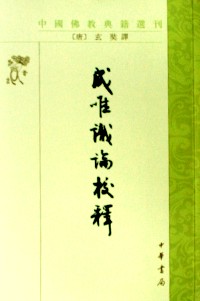 中國佛教典籍選刊
［唐］玄奘譯
成唯識論校釋
中華書局